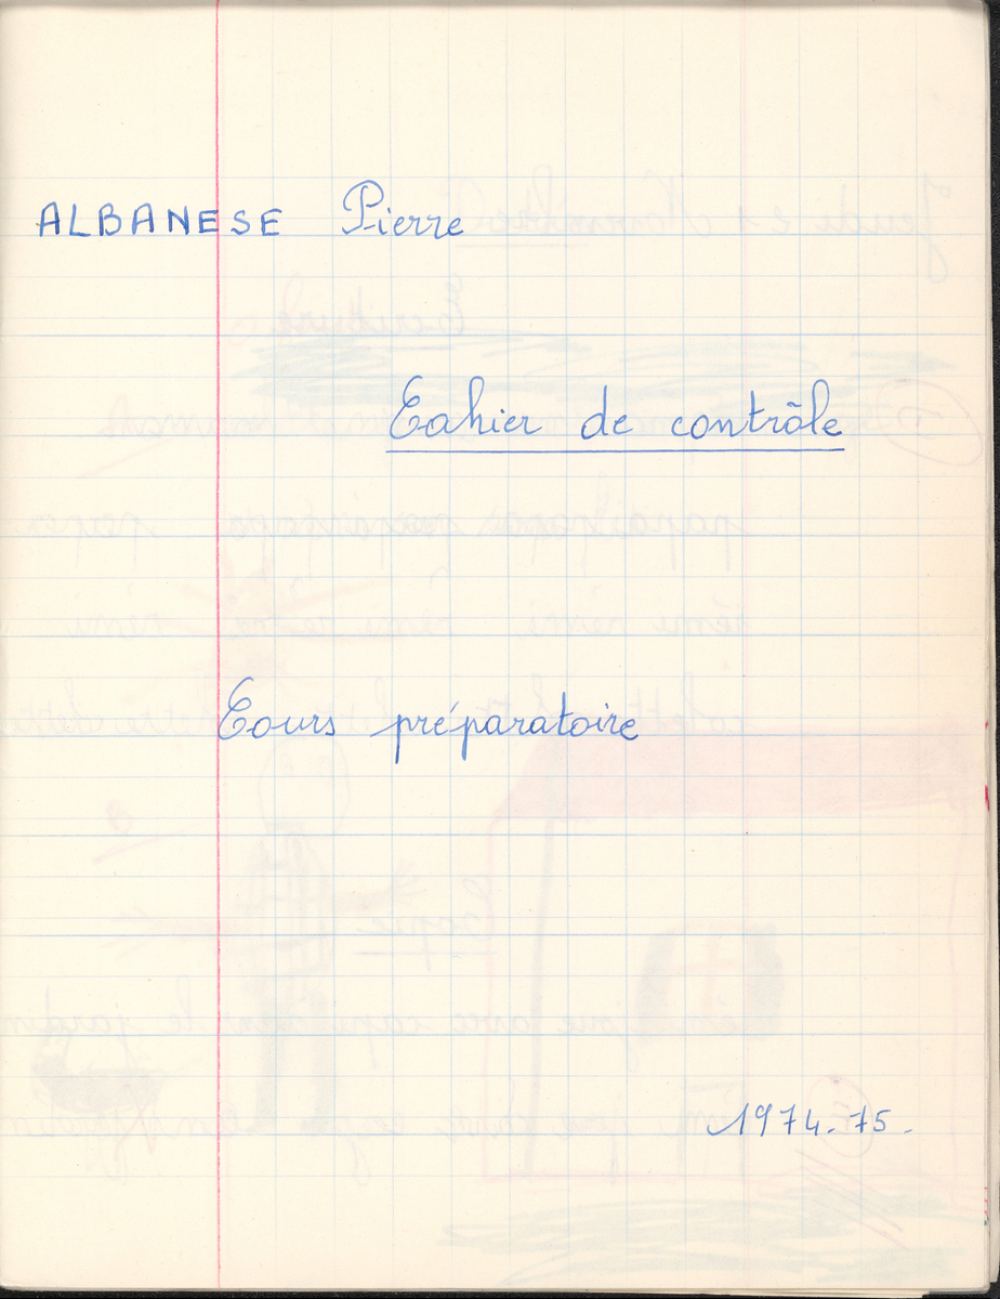 ALBANESE Pierre
Cahier de contrôle
Cours préparatoire
1974.75.